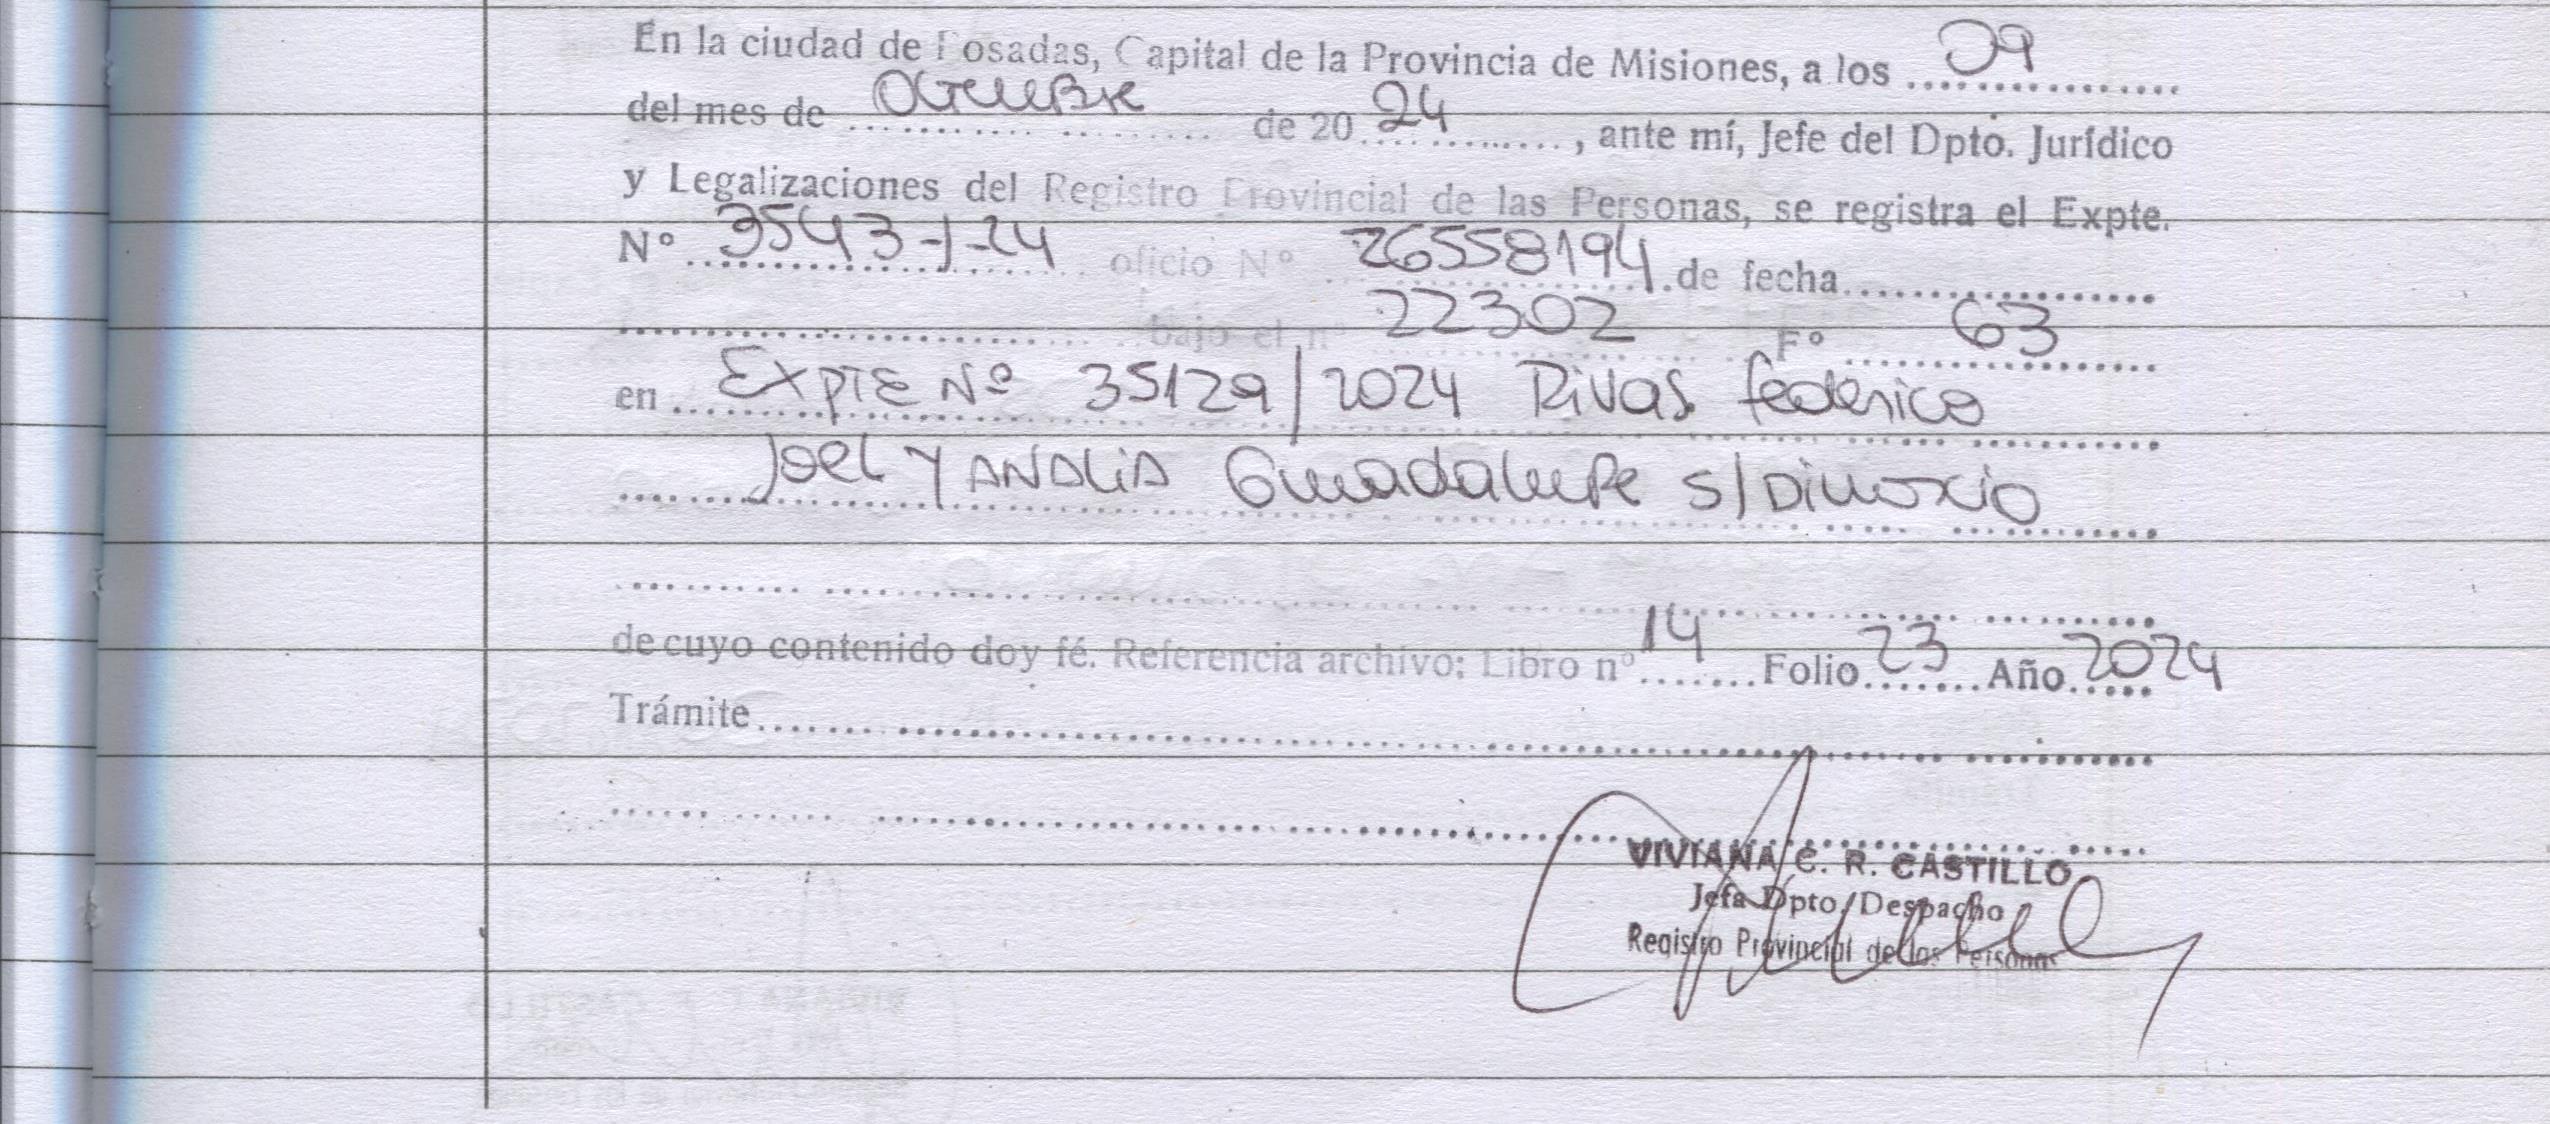 En la ciudad de Posadas, Capital de la Provincia de Misiones, a los 09
del mes de Octubre de 2024, ante mí, Jefe del Dpto. Jurídico
y Legalizaciones del Registro Provincial de las Personas, se registra el Expte.
Nº 3543-J-24 oficio Nº 26558194 de fecha
bajo el n 22302 Fº 63
en Expte Nº 35129/2024 Rivas Federico
Joel y Analia Guadalupe s/Divorcio
de cuyo contenido doy fé. Referencia archivo: Libro nº 14 Folio 23 Año 2024
Trámite
VIVIANA C. R. CASTILLO
Jefa Dpto. Despacho
Registro Provincial de las Personas